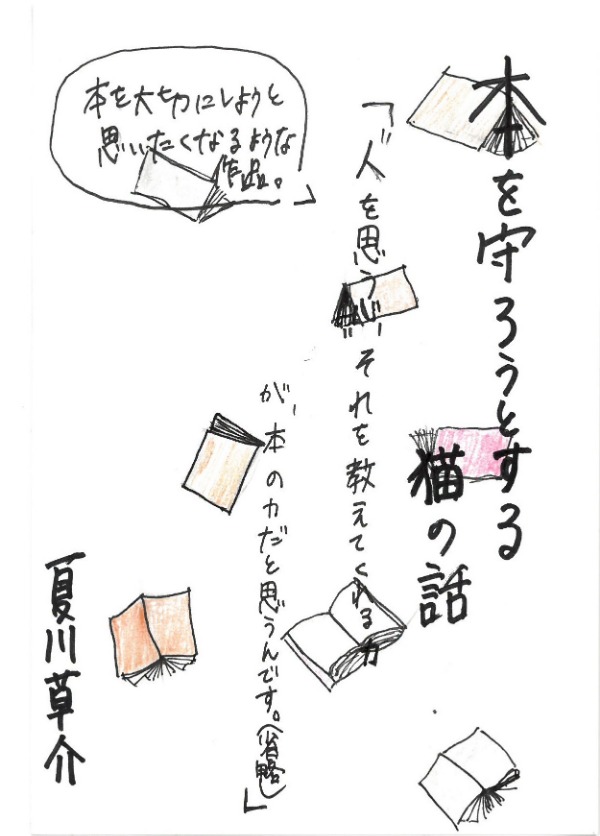 本を守ろうとする
猫の話
「"人を思う心"、それを教えてくれる力
が、本の力だと思うんです。(省略)」
本を大切にしようと
思いたくなるような
作品。
夏川草介